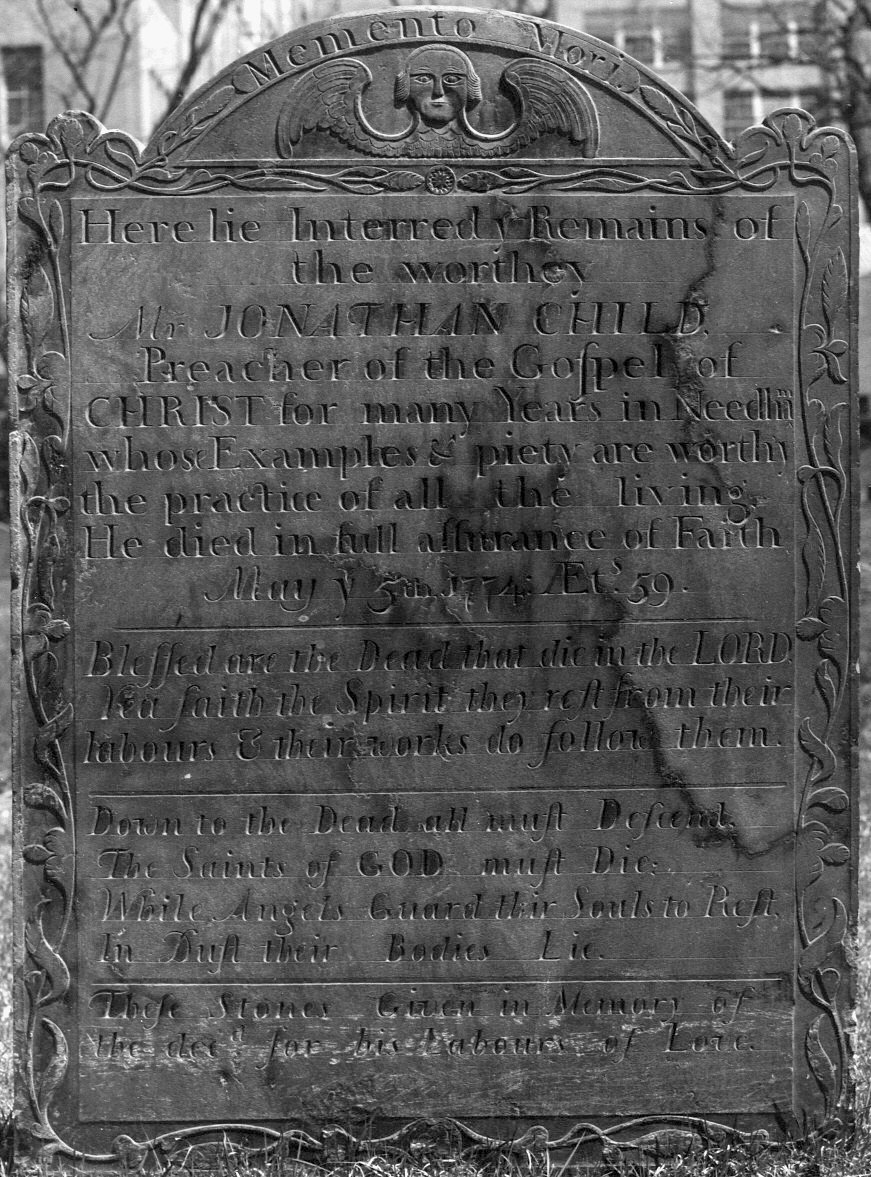 Memento Mori
Here lie Interred y Remains of
the worthey
Mr JONATHAN CHILD,
Preacher of the Goſpel of
CHRIST for many Years in Needhm
whose Examples & piety are worthy
the practice of all the living,
He died in full aſſurance of Faith
May y 5th. 1774: Æts. 59.
Bleſſed are the Dead that die in the LORD,
Yea ſaith the Spirit they reſt from their
labours & their works do follow them.
Down to the Dead all muſt Deſcend,
The Saints of GOD muſt Die:
While Angels Guard thir Souls to Reſt,
In Duſt their Bodies Lie.
Theſe Stones Given in Memory of
the decd for his Labours of Love.